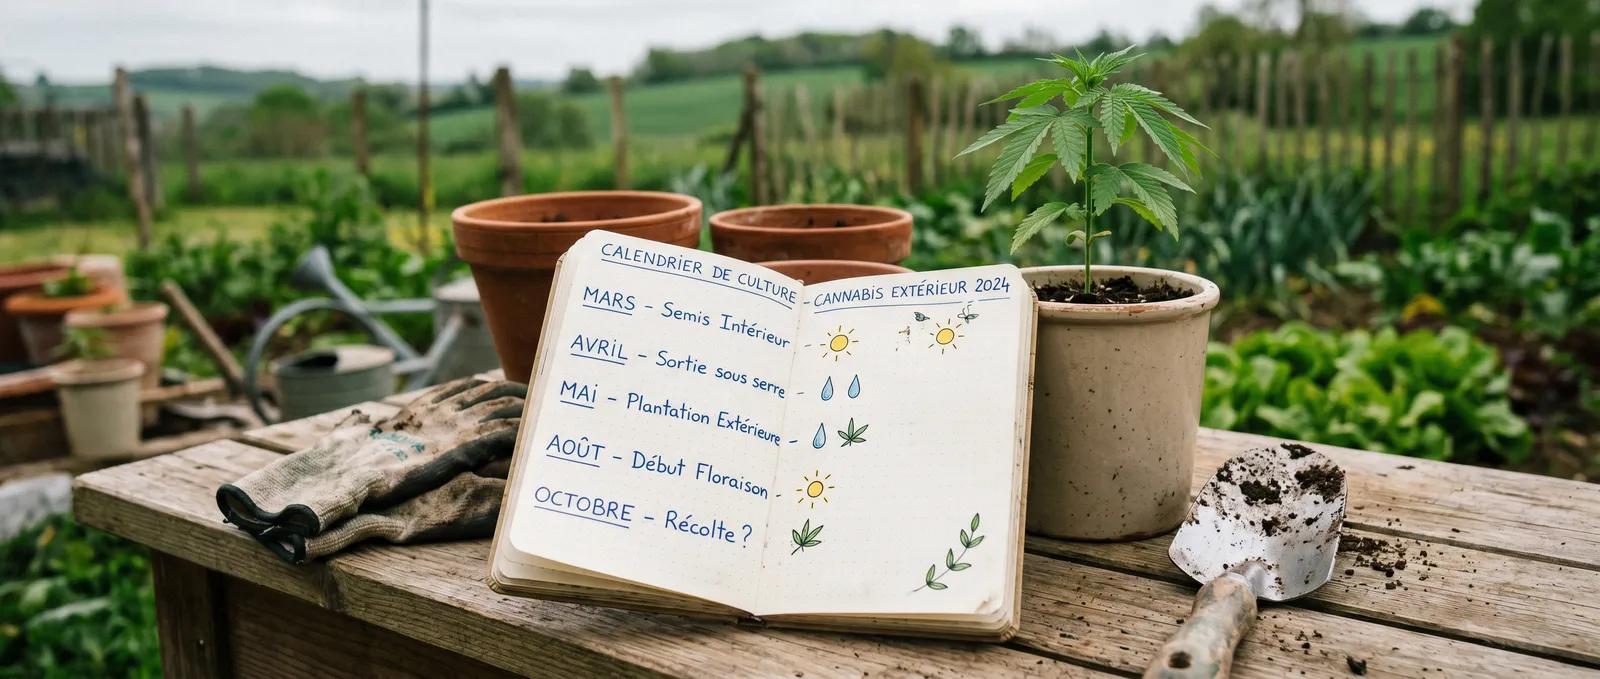 CALENDRIER DE CULTURE - CANNABIS EXTÉRIEUR 2024
MARS - Semis Intérieur -
AVRIL - Sortie sous serre -
MAI - Plantation Extérieure -
AOÛT - Début Floraison -
OCTOBRE - Récolte ?